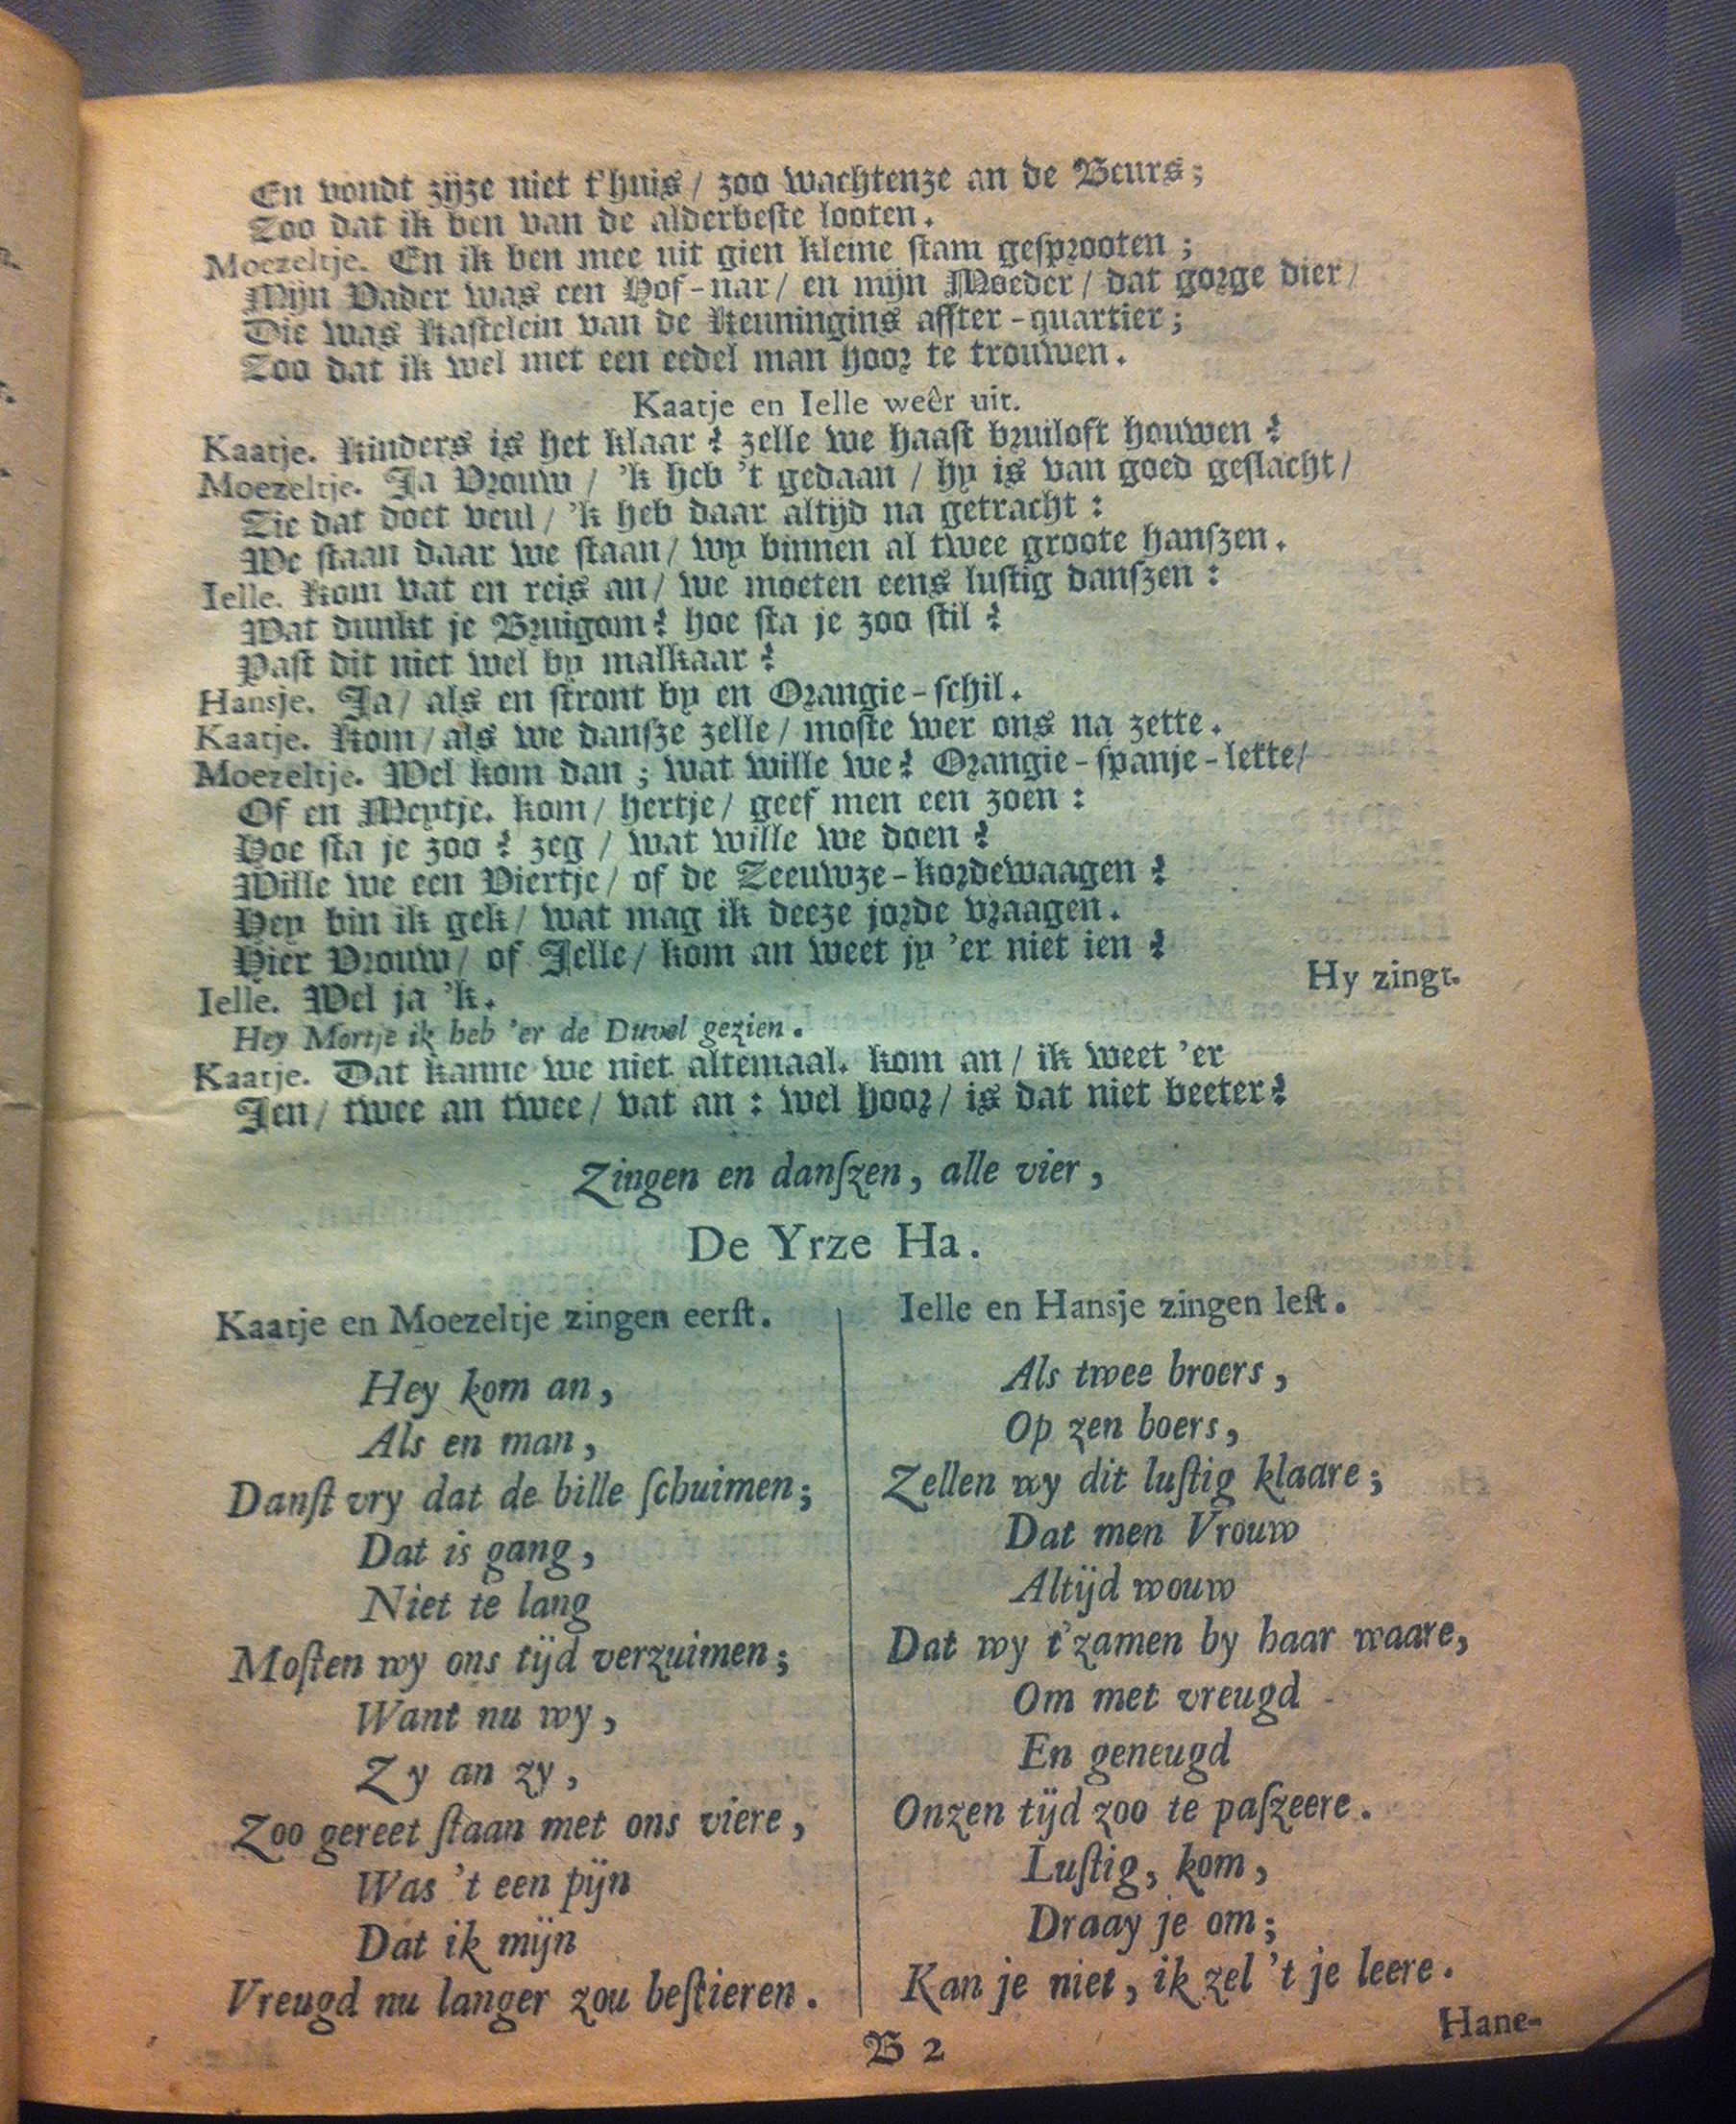 En vondt zijze niet t'huis / zoo wachtenze an de Beurs;
Zoo dat ik ben van de alderbeste looten.
Moezeltje. En ik ben mee uit gien kleine stam gesprooten ;
Mijn Vader was een Hof-nar / en mijn Moeder / dat gorge dier /
Die was Kastelein van de Keuningins affter-quartier ;
Zoo dat ik wel met een eedel man hoor te trouwen.
Kaatje en Ielle weêr uit.
Kaatje. Kinders is het klaar? zelle we haast bruiloft houwen?
Moezeltje. Ja Vrouw / 'k heb 't gedaan / hy is van goed geslacht /
Zie dat doet veul / 'k heb daar altijd na getracht :
We staan daar we staan / wy binnen al twee groote hanszen.
Ielle. Kom vat en reis an / we moeten eens lustig danszen :
Wat dunkt je Bruigom? hoe sta je zoo stil?
Past dit niet wel by malkaar?
Hansje. Ja / als en stront by en Orangie-schil.
Kaatje. Kom / als we dansze zelle / moste wer ons na zette.
Moezeltje. Wel kom dan ; wat wille we? Orangie-spanje-lette /
Of en Meytje. kom / hertje / geef men een zoen :
Hoe sta je zoo? zeg / wat wille we doen?
Wille we een Viertje / of de Zeeuwze-kordewaagen?
Hey bin ik gek / wat mag ik deeze jorde vraagen.
Hier Vrouw / of Jelle / kom an weet jy 'er niet ien?
Ielle. Wel ja 'k. Hy zingt.
Hey Mortje ik heb 'er de Duvel gezien.
Kaatje. Dat kanne we niet altemaal. kom an / ik weet 'er
Jen / twee an twee / vat an : wel hoor / is dat niet beeter?
Zingen en danſzen, alle vier,
De Yrze Ha.
Kaatje en Moezeltje zingen eerſt.
Hey kom an,
Als en man,
Danſt vry dat de bille ſchuimen;
Dat is gang,
Niet te lang
Moſten wy ons tijd verzuimen;
Want nu wy,
Zy an zy,
Zoo gereet ſtaan met ons viere,
Was 't een pijn
Dat ik mijn
Vreugd nu langer zou beſtieren.
Ielle en Hansje zingen leſt.
Als twee broers,
Op zen boers,
Zellen wy dit luſtig klaare;
Dat men Vrouw
Altijd wouw
Dat wy t'zamen by haar waare,
Om met vreugd
En geneugd
Onzen tijd zoo te paſzeere.
Luſtig, kom,
Draay je om;
Kan je niet, ik zel 't je leere.
B 2
Hane-